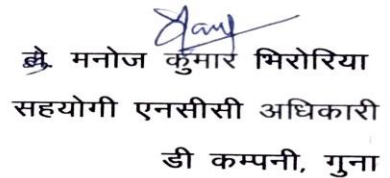 मनोज कुमार भिरोरिया
सहयोगी एनसीसी अधिकारी
डी कम्पनी, गुना